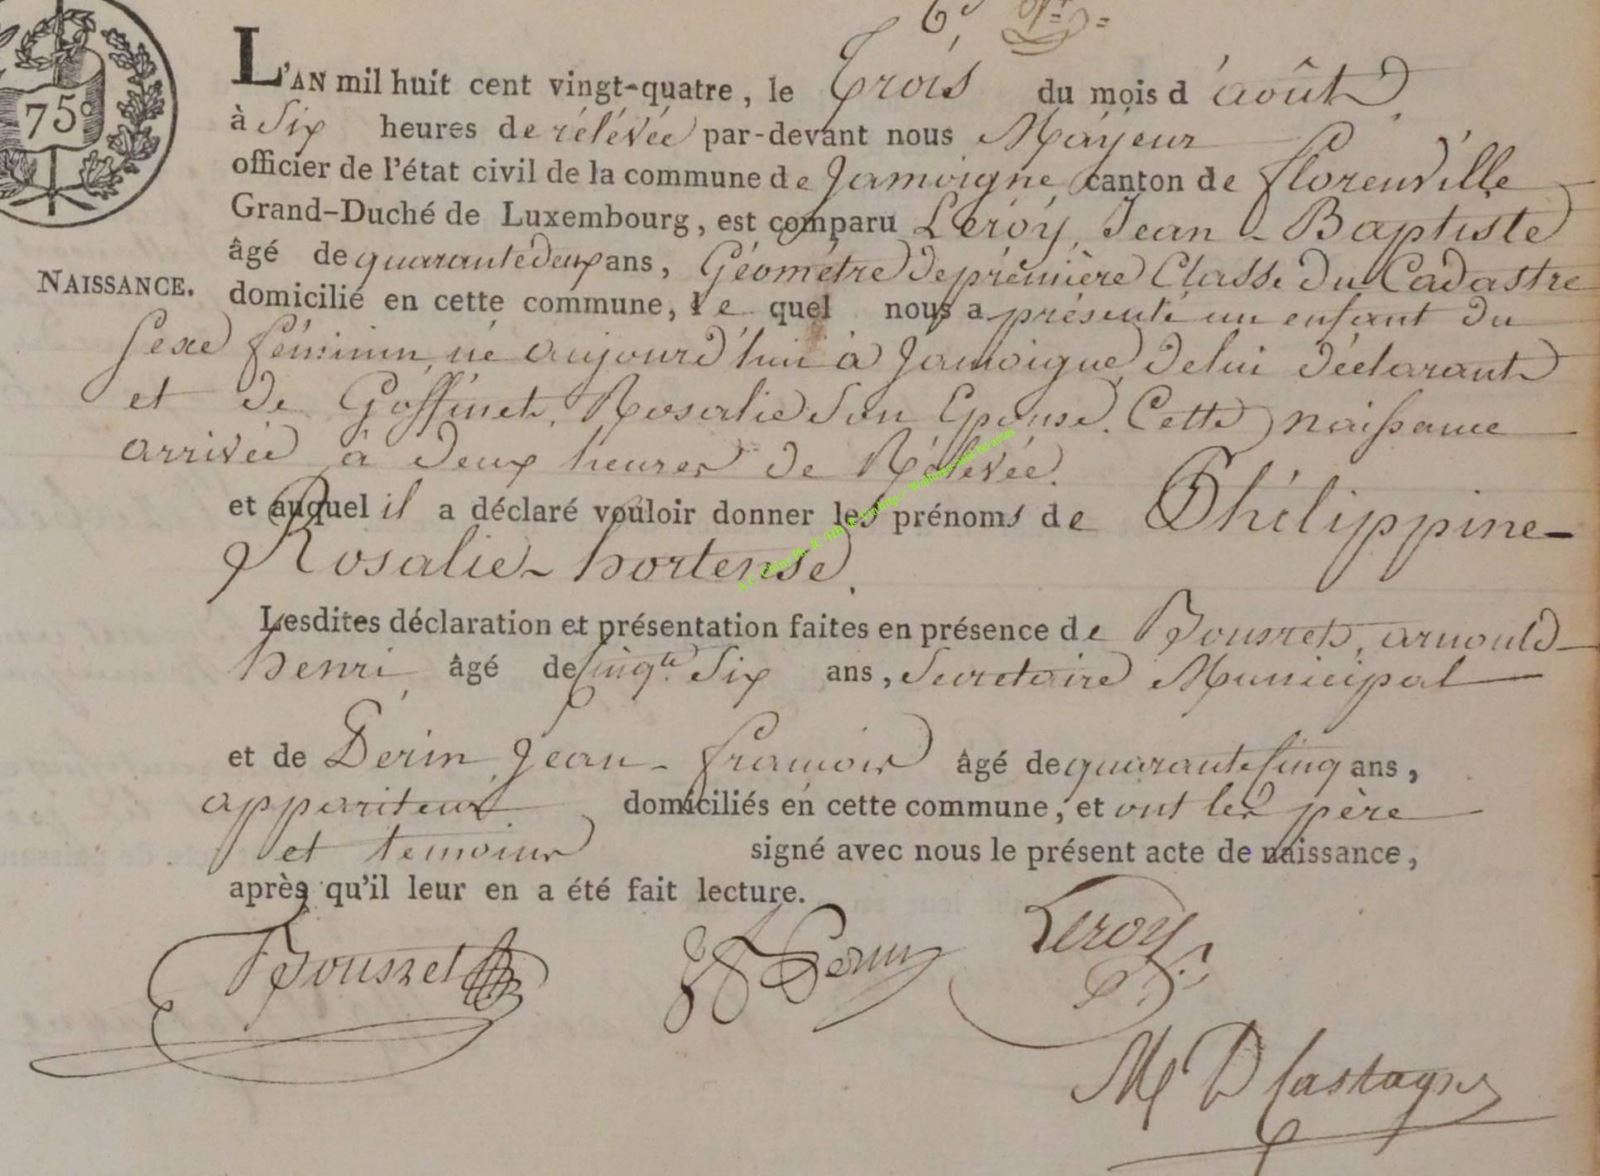 75c
L'AN mil huit cent vingt-quatre, le Trois du mois d'août
à Six heures de rélévée par-devant nous Mayeur
officier de l'état civil de la commune de Jamoigne, canton de florenville
Grand-Duché de Luxembourg, est comparu Leroy, Jean-Baptiste
âgé de quarante deux ans, Géométre de première Classe du Cadastre
NAISSANCE.
domicilié en cette commune, le quel nous a présenté un enfant du
sexe féminin né aujourd'hui à Jamoigne, de lui déclarant
et de Goffinet, Rosalie son Epouse. Cette naissance
arrivée à deux heures de Rélevée.
et auquel il a déclaré vouloir donner les prénoms de Philippine-
Rosalie-hortense.
Lesdites déclaration et présentation faites en présence de arnould
henri, âgé de Cinqte Six ans, Secretaire Municipal
et de Jean-francois âgé de quarante Cinq ans,
appariteur domiciliés en cette commune, et ont les père
et temoins signé avec nous le présent acte de naissance,
après qu'il leur en a été fait lecture.
Leroy